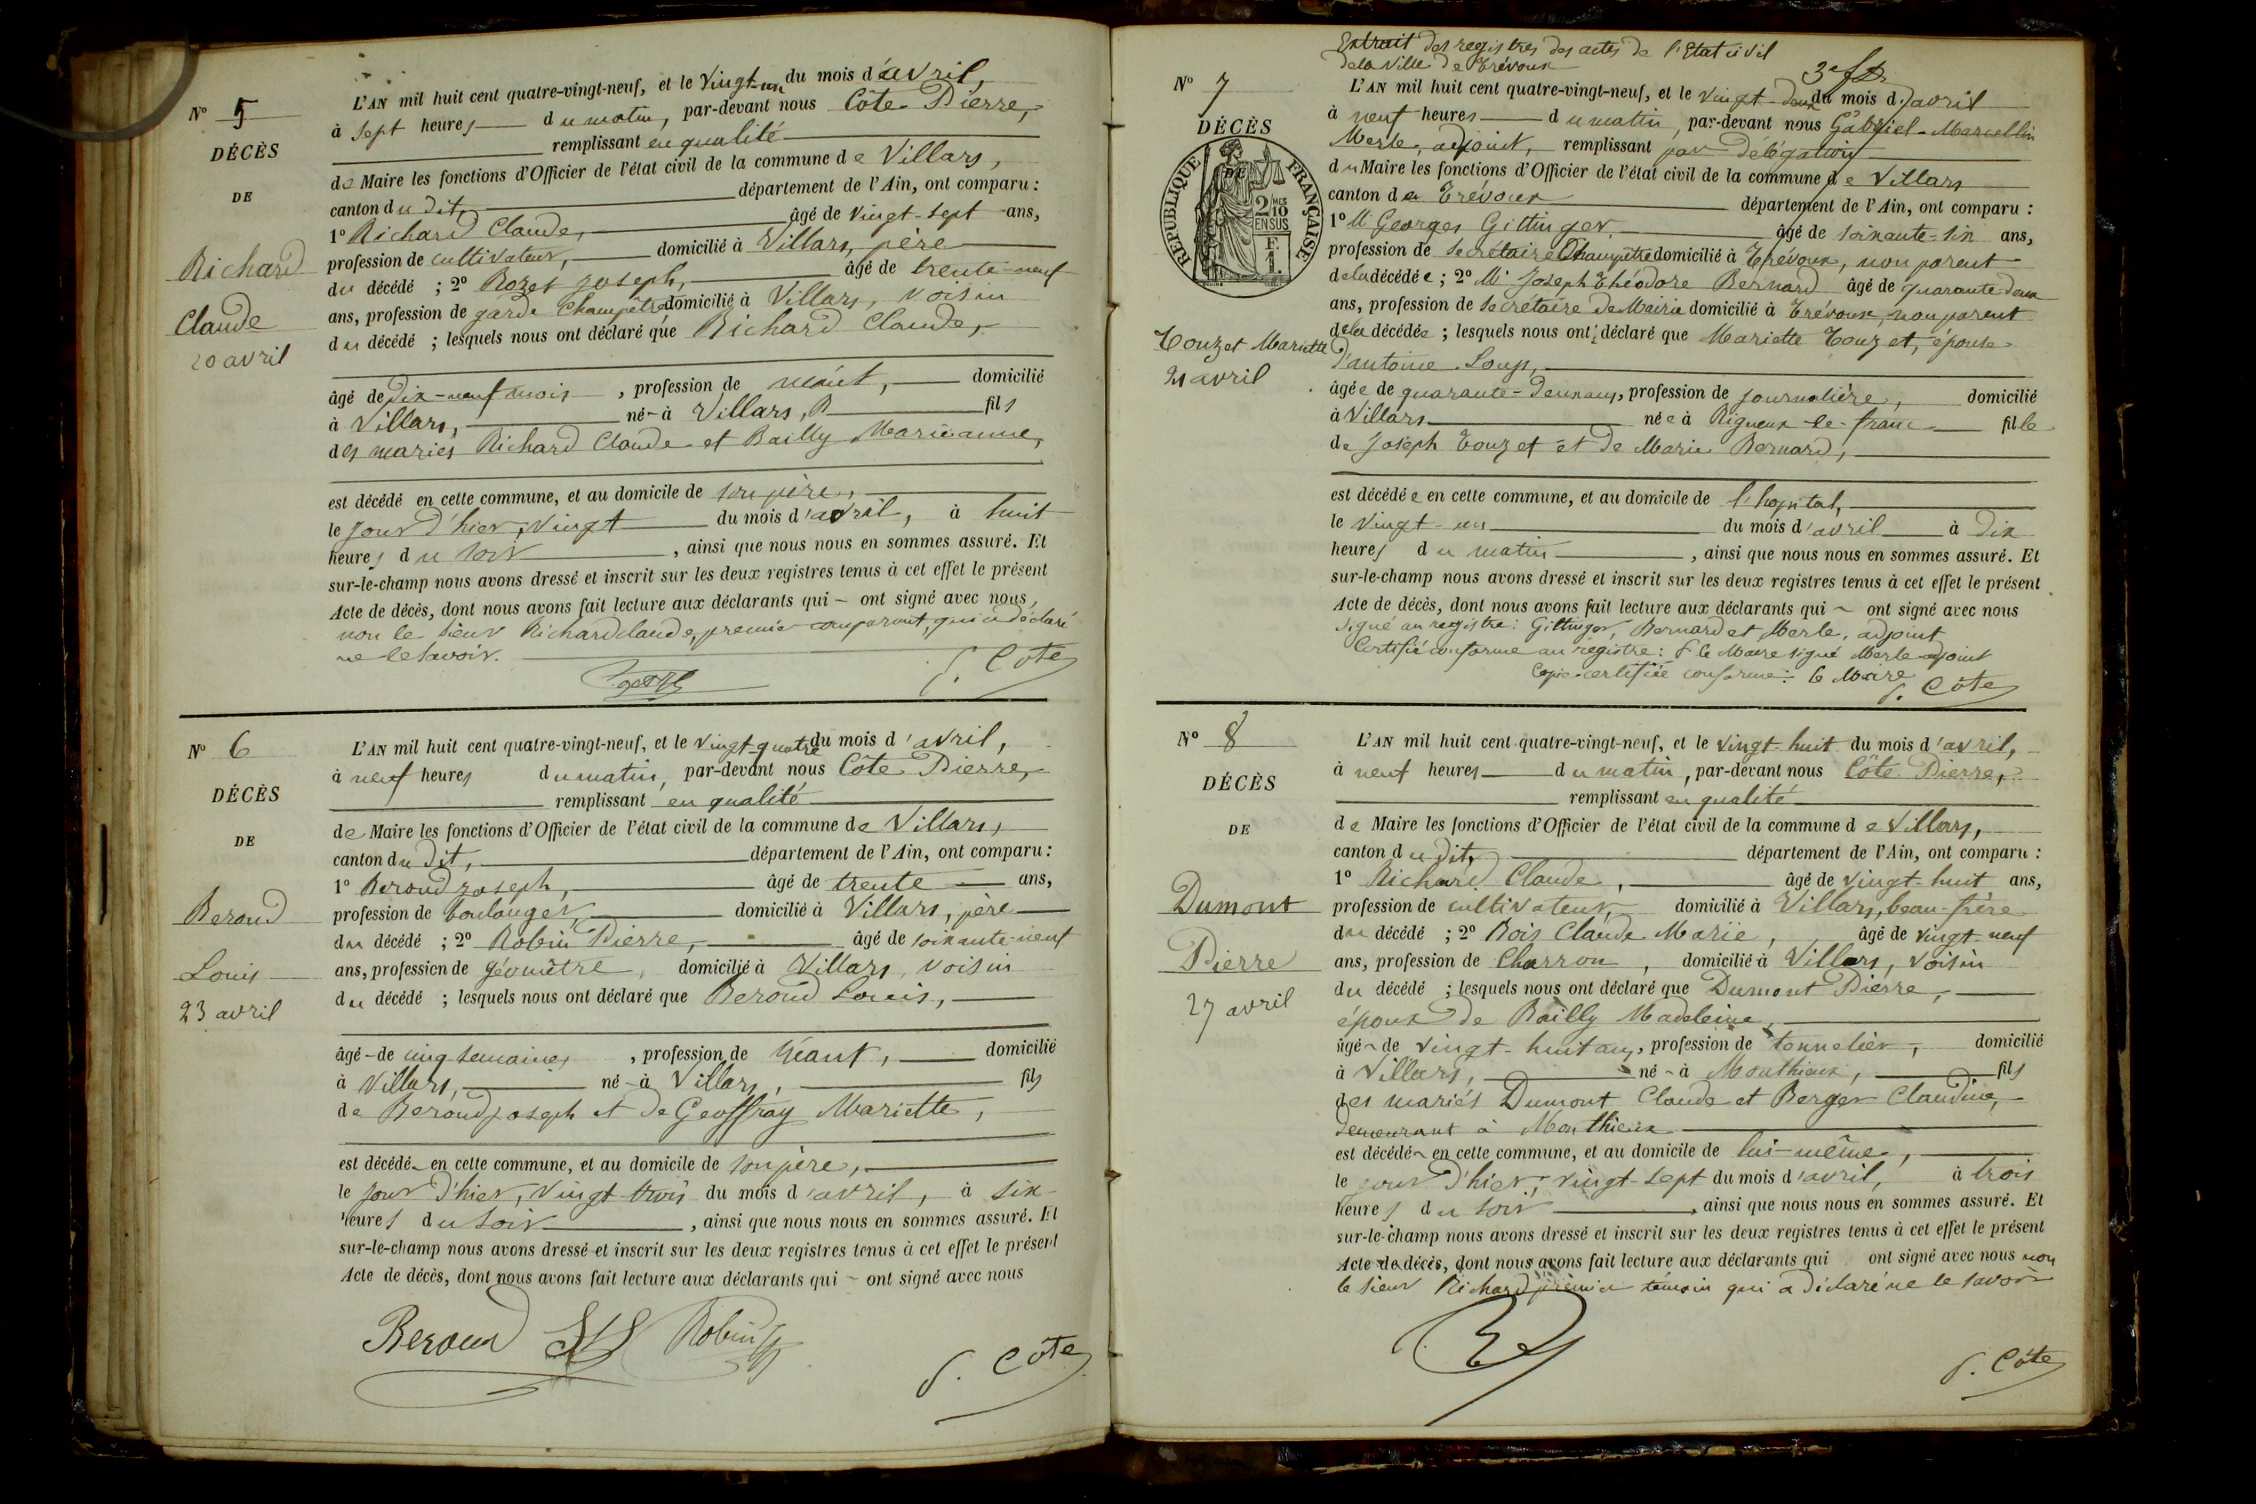 N° 5
DÉCÈS
DE
Richard
Claude
20 avril
L'AN mil huit cent quatre-vingt-neuf, et le vingt-un du mois d'avril,
à sept heures du matin, par-devant nous Côte Pierre,
remplissant en qualité
de Maire les fonctions d'Officier de l'état civil de la commune de Villars,
canton du dit, département de l'Ain, ont comparu :
1° Richard Claude, âgé de vingt-sept ans,
profession de cultivateur, domicilié à Villars, père
du décédé ; 2° Rozet Joseph, âgé de trente-neuf
ans, profession de garde Champêtre domicilié à Villars, voisin
du décédé ; lesquels nous ont déclaré que Richard Claude,
âgé de dix-neuf mois, profession de néant, domicilié
à Villars, né à Villars, fils
des mariés Richard Claude et Bailly Marieanne,
est décédé en cette commune, et au domicile de son père,
le jour d'hier, vingt du mois d'avril, à huit
heures du soir, ainsi que nous nous en sommes assuré. Et
sur-le-champ nous avons dressé et inscrit sur les deux registres tenus à cet effet le présent
Acte de décès, dont nous avons fait lecture aux déclarants qui ont signé avec nous,
non le sieur Richard Claude, premier comparant, qui a déclaré
ne le savoir.
P. Côte
N° 6
DÉCÈS
DE
Beroud
Louis
23 avril
L'AN mil huit cent quatre-vingt-neuf, et le vingt-quatre du mois d'avril,
à neuf heures du matin, par-devant nous Côte Pierre,
remplissant en qualité
de Maire les fonctions d'Officier de l'état civil de la commune de Villars,
canton du dit, département de l'Ain, ont comparu :
1° Beroud Joseph, âgé de trente ans,
profession de boulanger, domicilié à Villars, père
du décédé ; 2° Robin Pierre, âgé de soixante-neuf
ans, profession de géomètre, domicilié à Villars, voisin
du décédé ; lesquels nous ont déclaré que Beroud Louis,
âgé de cinq semaines, profession de Néant, domicilié
à Villars, né à Villars, fils
de Beroud Joseph et de Geoffray Mariette,
est décédé en cette commune, et au domicile de son père,
le jour d'hier, vingt-trois du mois d'avril, à six
heures du soir, ainsi que nous nous en sommes assuré. Et
sur-le-champ nous avons dressé et inscrit sur les deux registres tenus à cet effet le présent
Acte de décès, dont nous avons fait lecture aux déclarants qui ont signé avec nous
Beroud Robin
P. Côte
Extrait des registres des actes de l'Etat civil
de la Ville de Trévoux
N° 7
DÉCÈS
DE
RÉPUBLIQUE FRANÇAISE
2/10 MES EN SUS
F. 1.
Touzet Mariette
21 avril
L'AN mil huit cent quatre-vingt-neuf, et le vingt-deux du mois d'avril
à neuf heures du matin, par-devant nous Gabriel-Marcellin
Merle, adjoint, remplissant par délégation
du Maire les fonctions d'Officier de l'état civil de la commune de Villars
canton de Trévoux département de l'Ain, ont comparu :
1° M Georges Gittinger, âgé de soixante-six ans,
profession de secrétaire Champêtre domicilié à Trévoux, non parent
de la décédée ; 2° Mr Joseph Théodore Bernard âgé de quarante-deux
ans, profession de secrétaire de Mairie domicilié à Trévoux, non parent
de la décédée ; lesquels nous ont déclaré que Mariette Touzet, épouse
d'antoine Loup,
âgée de quarante-deux ans, profession de journalière, domicilié
à Villars née à Rigneux-le-franc fille
de Joseph Touzet et de Marie Bernard,
est décédée en cette commune, et au domicile de l'hopital,
le vingt-un du mois d'avril à dix
heures du matin, ainsi que nous nous en sommes assuré. Et
sur-le-champ nous avons dressé et inscrit sur les deux registres tenus à cet effet le présent
Acte de décès, dont nous avons fait lecture aux déclarants qui ont signé avec nous
signé au registre : Gittinger, Bernard et Merle, adjoint
Certifié conforme au registre : P le Maire signé Merle adjoint
Copie certifiée conforme : le Maire
P. Côte
N° 8
DÉCÈS
DE
Dumont
Pierre
27 avril
L'AN mil huit cent quatre-vingt-neuf, et le vingt-huit du mois d'avril,
à neuf heures du matin, par-devant nous Côte Pierre,
remplissant en qualité
de Maire les fonctions d'Officier de l'état civil de la commune de Villars,
canton du dit, département de l'Ain, ont comparu :
1° Richard Claude, âgé de vingt-huit ans,
profession de cultivateur, domicilié à Villars, beau-frère
du décédé ; 2° Bois Claude Marie, âgé de vingt-neuf
ans, profession de Charron, domicilié à Villars, voisin
du décédé ; lesquels nous ont déclaré que Dumont Pierre,
époux de Bailly Madeleine,
âgé de vingt-huit ans, profession de tonnelier, domicilié
à Villars, né à Monthieux, fils
des mariés Dumont Claude et Berger Claudine,
demeurant à Monthieux
est décédé en cette commune, et au domicile de lui-même,
le jour d'hier, vingt-sept du mois d'avril, à trois
heures du soir, ainsi que nous nous en sommes assuré. Et
sur-le-champ nous avons dressé et inscrit sur les deux registres tenus à cet effet le présent
Acte de décès, dont nous avons fait lecture aux déclarants qui ont signé avec nous non
le sieur Richard premier témoin qui a déclaré ne le savoir
P. Côte